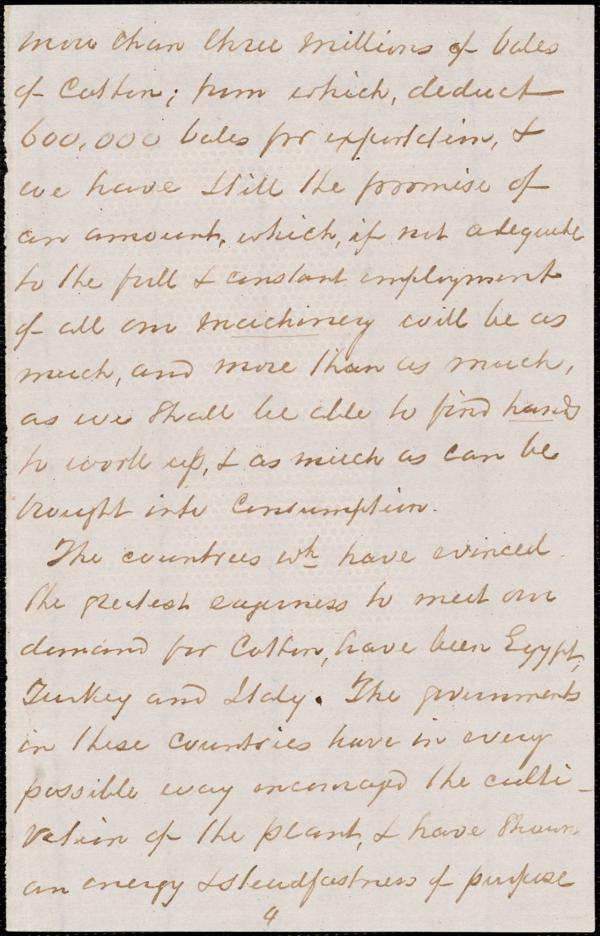 more than three millions of bales
of Cotton; from which, deduct
600,000 bales for exportation, &
we have still the promise of
an amount, which, if not adequate
to the full & constant employment
of all our machinery will be as
much, and more than as much,
as we shall be able to find hands
to work up, & as much as can be
brought into Consumption.
The countries wh have evinced
the greatest eagerness to meet our
demand for Cotton, have been Egypt,
Turkey and Italy. The governments
in these countries have in every
possible way encouraged the culti-
vation of the plant, & have shown
an energy & steadfastness of purpose
4